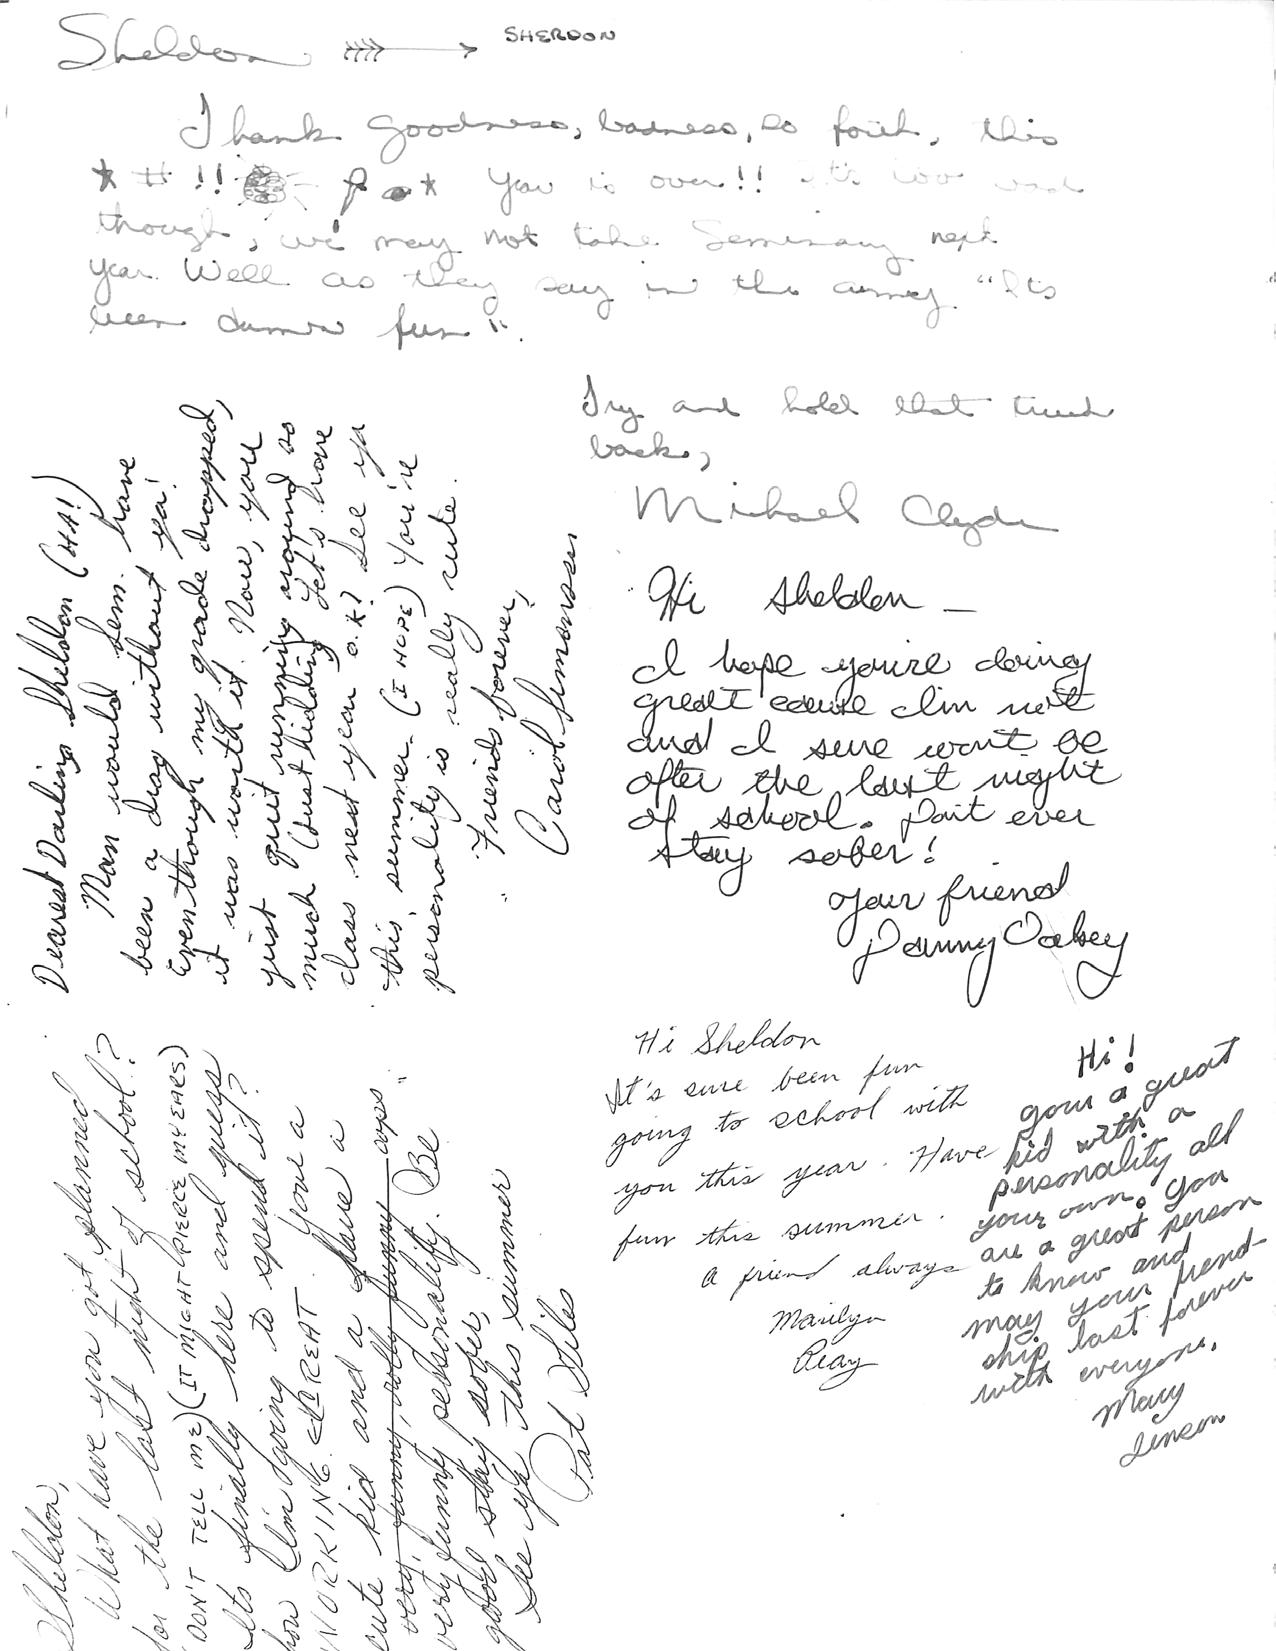 Sheldon SHERDON
Thank goodness, badness, so forth, this
* # !! * Year is over!! It's too bad
though, we may not take Seminary next
year. Well as they say in the army "It's
been damn fun".
Try and hold that tiend
back,
Michael Clyde
Dearest Darling Sheldon (HA!)
Man would Sem. have
been a drag without ya!
Even though my grade dropped,
it was worth it. Now, you
just quit running around so
much (Just kidding) Let's have
class next year o.k? See ya
this summer. (I HOPE) You're
personality is really cute.
"Friends forever,"
Carol Simonsen
Hi Sheldon —
I hope you're doing
great cause I'm not
and I sure won't be
after the last night
of school. Don't ever
stay sober!
Your friend
Danny Oakey
Sheldon,
What have you got planned
for the last night of school?
(DON'T TELL ME) (IT MIGHT PIERCE MY EARS)
It's finally here and guess
how I'm going to spend it?
WORKING. GREAT. Your a
cute kid and a have a
very funny, solly funny oops"
very funny personality. Be
good stay sober,
See ya this summer
Pat Liles
Hi Sheldon
It's sure been fun
going to school with
you this year. Have
fun this summer.
a friend always
Marilyn
Reay
Hi!
your a great
kid with a
personality all
your own. you
are a great person
to know and
may your friend-
ship last forever
with everyone,
Mary
Jenson